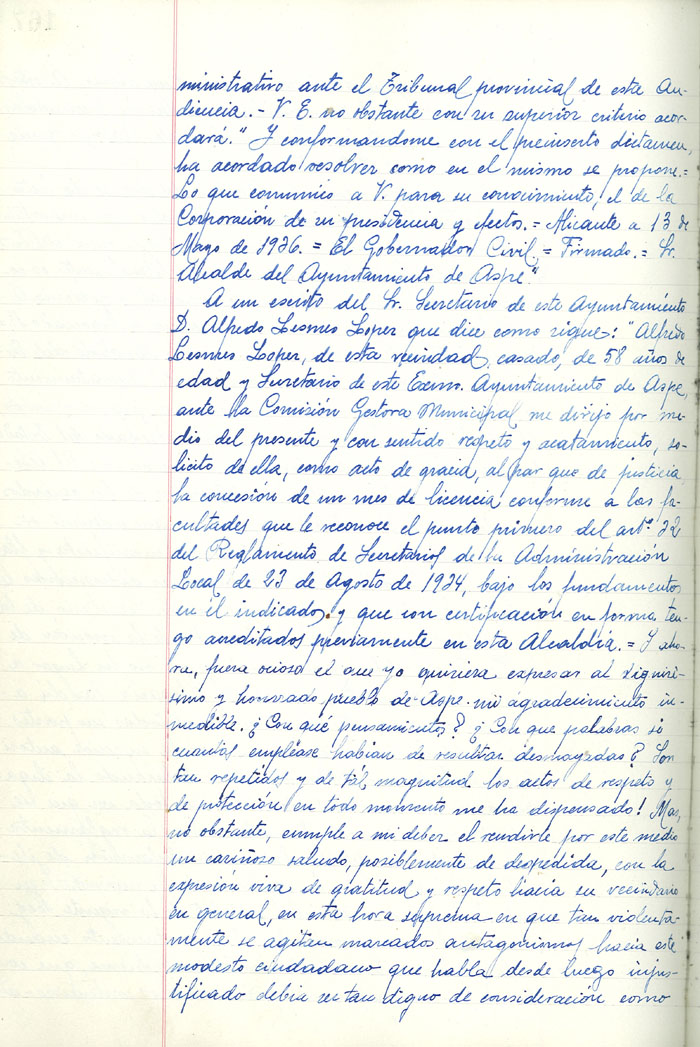 ministrativo ante el Tribunal provincial de esta Au-
diencia.- V. E. no obstante con su superior criterio acor-
dará." Y conformandome con el preinserto dictamen,
ha acordado resolver como en el mismo se propone.=
Lo que comunico a V. para su conocimiento, el de la
Corporación de su presidencia y efectos.= Alicante a 13 de
Mayo de 1936. = El Gobernador Civil.= Firmado.= Sr.
Alcalde del Ayuntamiento de Aspe."
A un escrito del Sr. Secretario de este Ayuntamiento
D. Alfredo Lesmes Lopez que dice como sigue: "Alfredo
Lesmes Lopez, de esta vecindad, casado, de 58 años de
edad y Secretario de este Excmo. Ayuntamiento de Aspe,
ante la Comisión Gestora Municipal me dirijo por me-
dio del presente y con sentido respeto y acatamiento, so-
licito de ella, como acto de gracia, al par que de justicia
la concesión de un mes de licencia conforme a las fa-
cultades que le reconoce el punto primero del artº. 32
del Reglamento de Secretarios de la Administración
Local de 23 de Agosto de 1924, bajo los fundamentos
en él indicados y que con certificación en forma, ten-
go acreditados previamente en esta Alcaldía.= Y aho-
ra, fuera ocioso el que yo quisiera expresar al dignisi-
simo y honrado pueblo de Aspe mi agradecimiento in-
medible. ¿Con qué pensamientos? ¿Con que palabras si
cuantas empléase habian de resultar desmayadas? Son
tan repetidos y de tál magnitud los actos de respeto y
de protección en todo momento me ha dispensado! Mas,
no obstante, cumple a mi deber el rendirle por este medio
un cariñoso saludo, posiblemente de despedida, con la
expresión viva de gratitud y respeto hacia su vecindario
en general, en esta hora suprema en que tan violenta-
mente se agitan marcados antagonismos hacia este
modesto ciudadano que habla desde luego injus-
tificado debia ser tan digno de consideración como